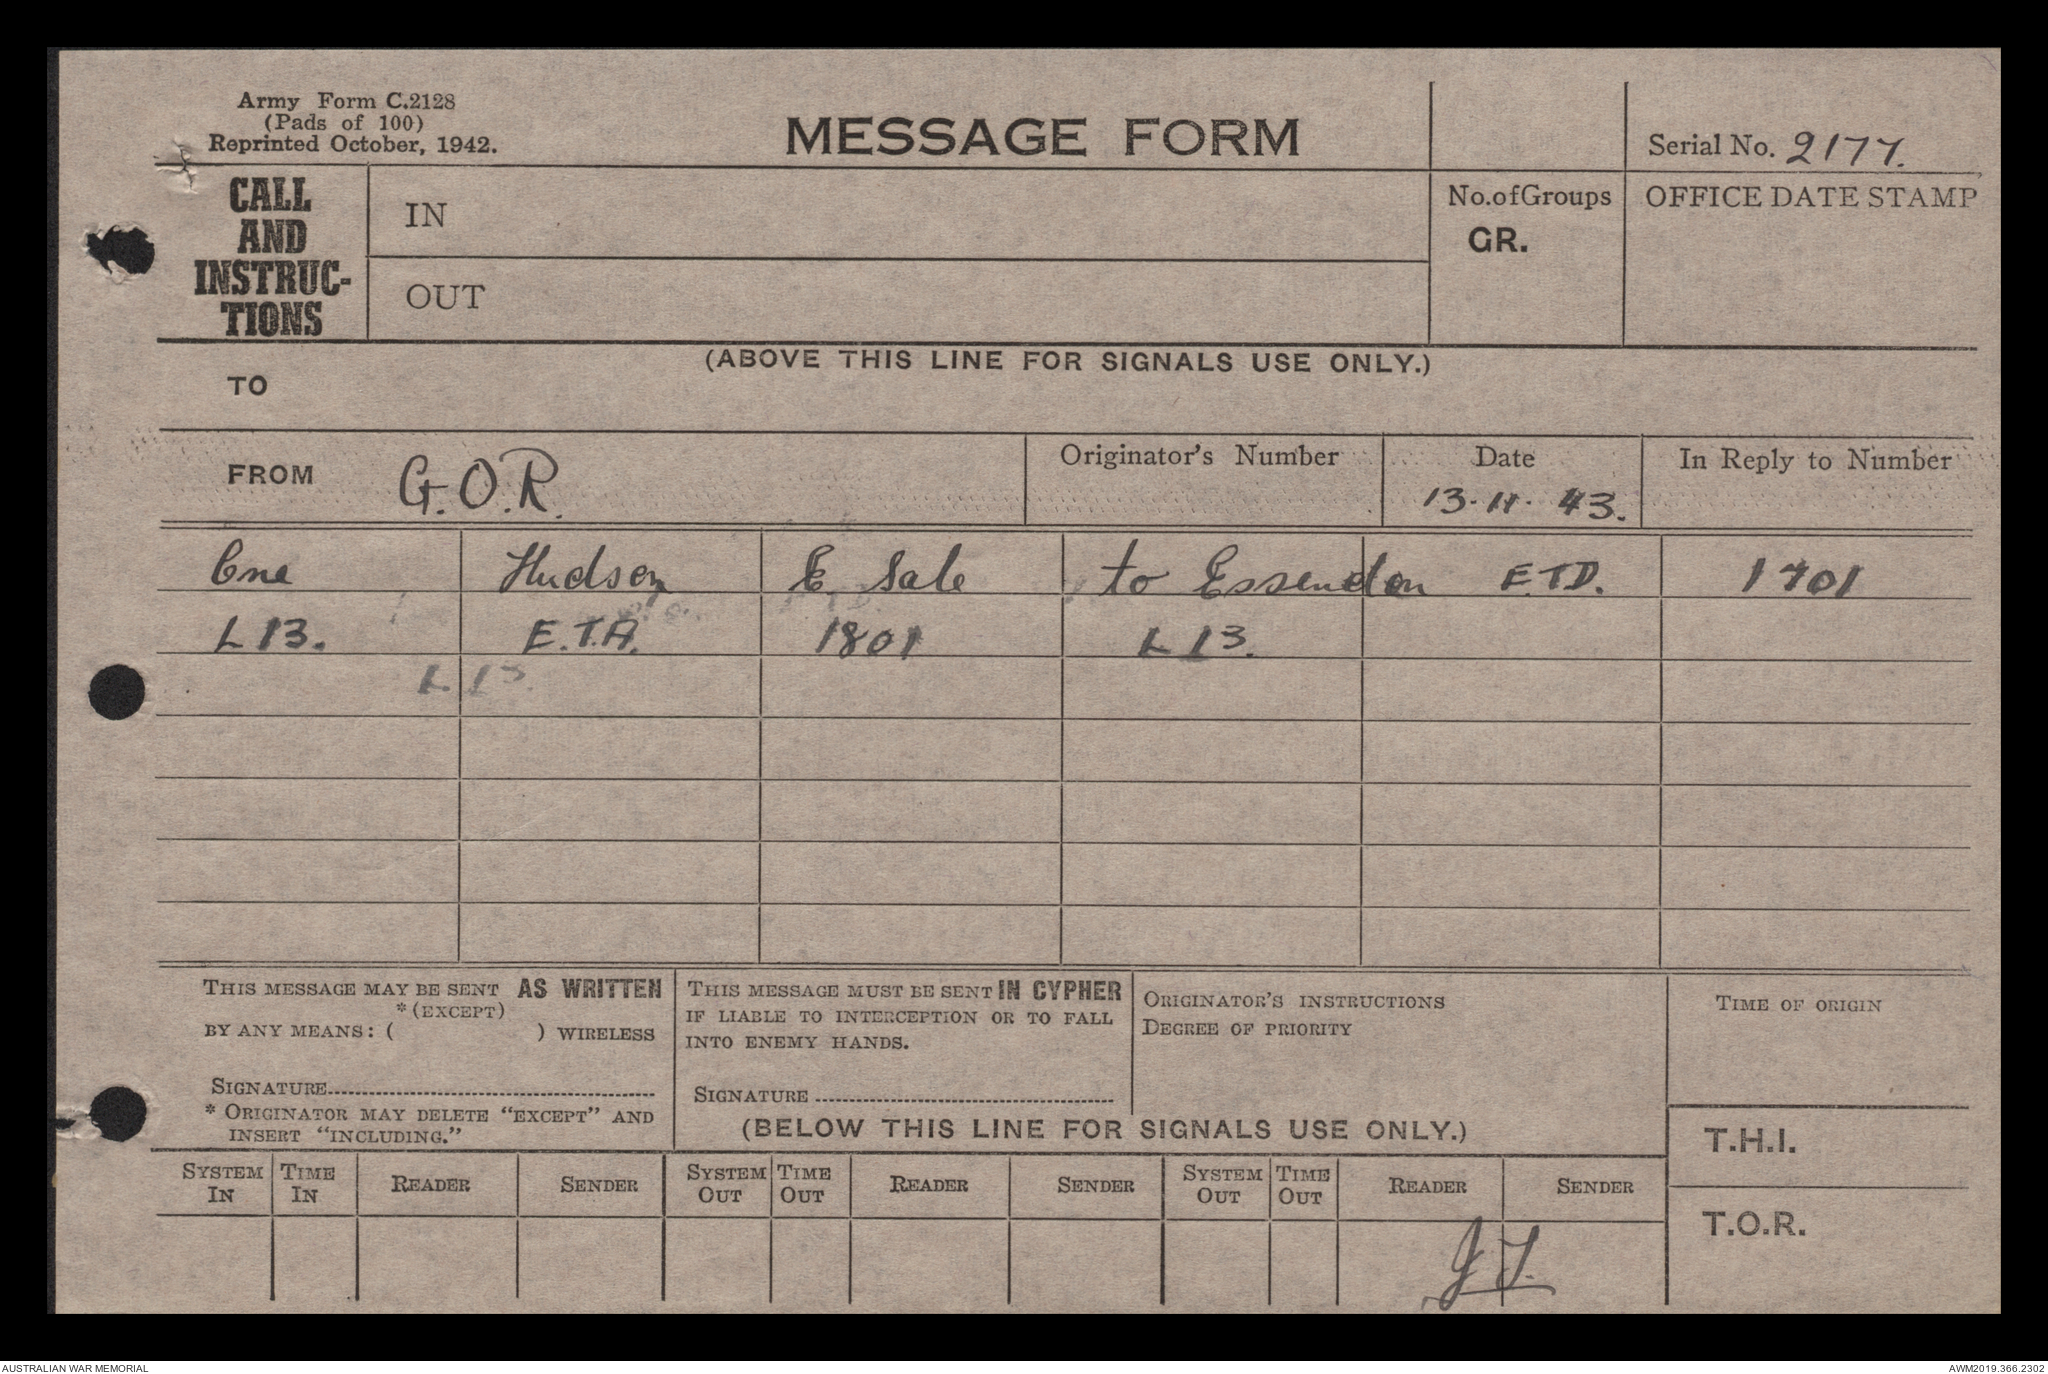 Army Form C.2128
(Pads of 100)
Reprinted October, 1942.
MESSAGE FORM
Serial No. 2177.
CALL
AND
INSTRUC-
TIONS
IN
OUT
No. of Groups
GR.
OFFICE DATE STAMP
(ABOVE THIS LINE FOR SIGNALS USE ONLY.)
TO
FROM G.O.R.
Originator's Number
Date
13.11.43.
In Reply to Number
One Hudson E Sale to Essendon E.T.D. 1701
L13. E.T.A. 1801 L13.
L13.
THIS MESSAGE MAY BE SENT AS WRITTEN
*(EXCEPT)
BY ANY MEANS: ( ) WIRELESS
SIGNATURE
* ORIGINATOR MAY DELETE "EXCEPT" AND
INSERT "INCLUDING."
THIS MESSAGE MUST BE SENT IN CYPHER
IF LIABLE TO INTERCEPTION OR TO FALL
INTO ENEMY HANDS.
SIGNATURE
ORIGINATOR'S INSTRUCTIONS
DEGREE OF PRIORITY
TIME OF ORIGIN
(BELOW THIS LINE FOR SIGNALS USE ONLY.)
T.H.I.
T.O.R.
SYSTEM IN TIME IN READER SENDER SYSTEM OUT TIME OUT READER SENDER SYSTEM OUT TIME OUT READER SENDER
AUSTRALIAN WAR MEMORIAL
AWM2019.366.2302